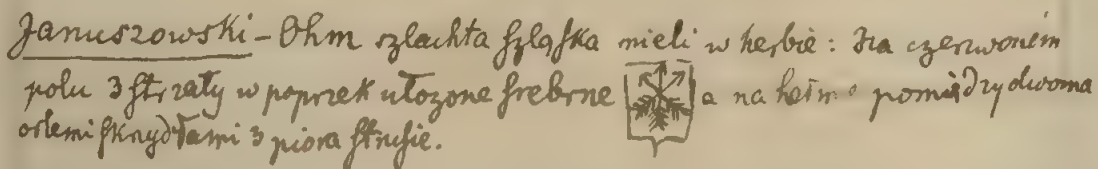 Januszowski – Ohm szlachta szląska mieli w herbie: Na czerwonem
polu 3 strzały w poprzek ułożone srebrne a na hełmie pomiędzy dwoma
orlemi skrzydłami 3 pióra strusie.